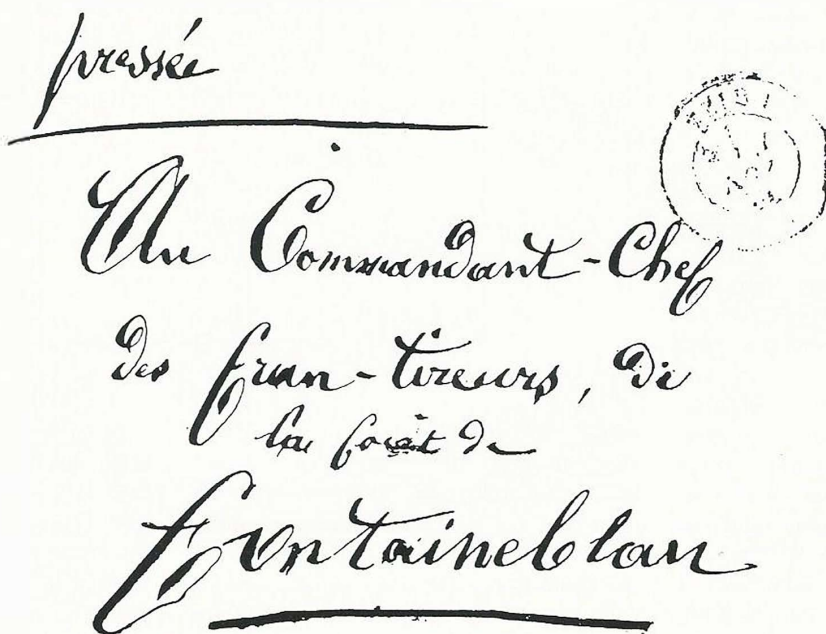 pressée
Au Commandant-Chef
des fran-tireurs, de
la forêt de
Fontaineblau